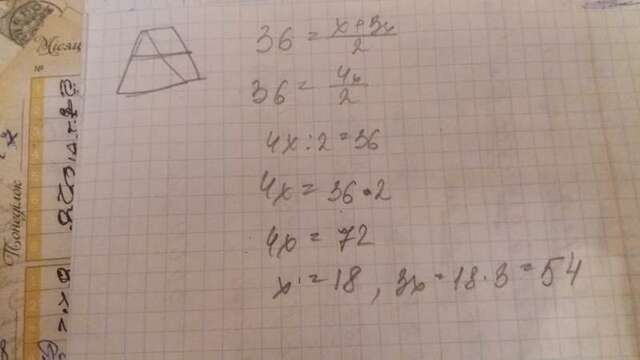 Понеділок
№
Місяц
36 = x+3x/2
36 = 4x/2
4x:2=36
4x=36·2
4x = 72
x = 18, 3x = 18·3 = 54